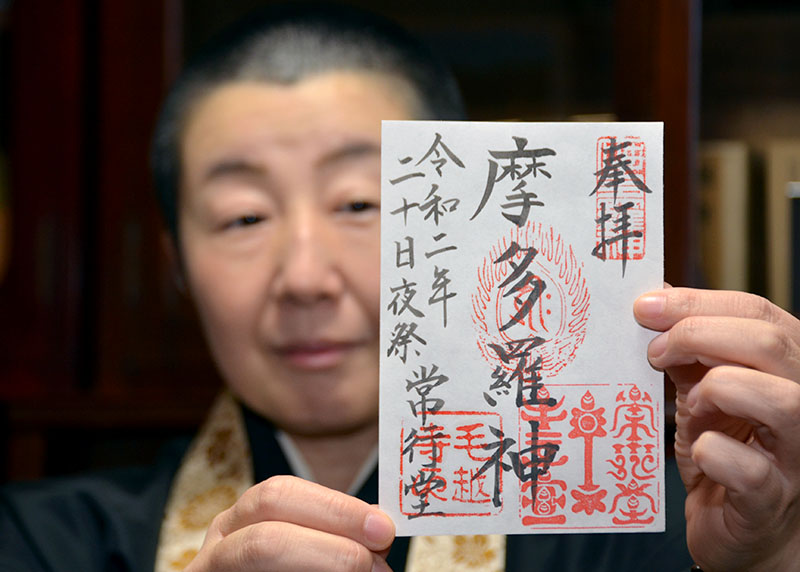 奉拝
摩多羅神
令和二年
二十日夜祭 常行堂
毛越